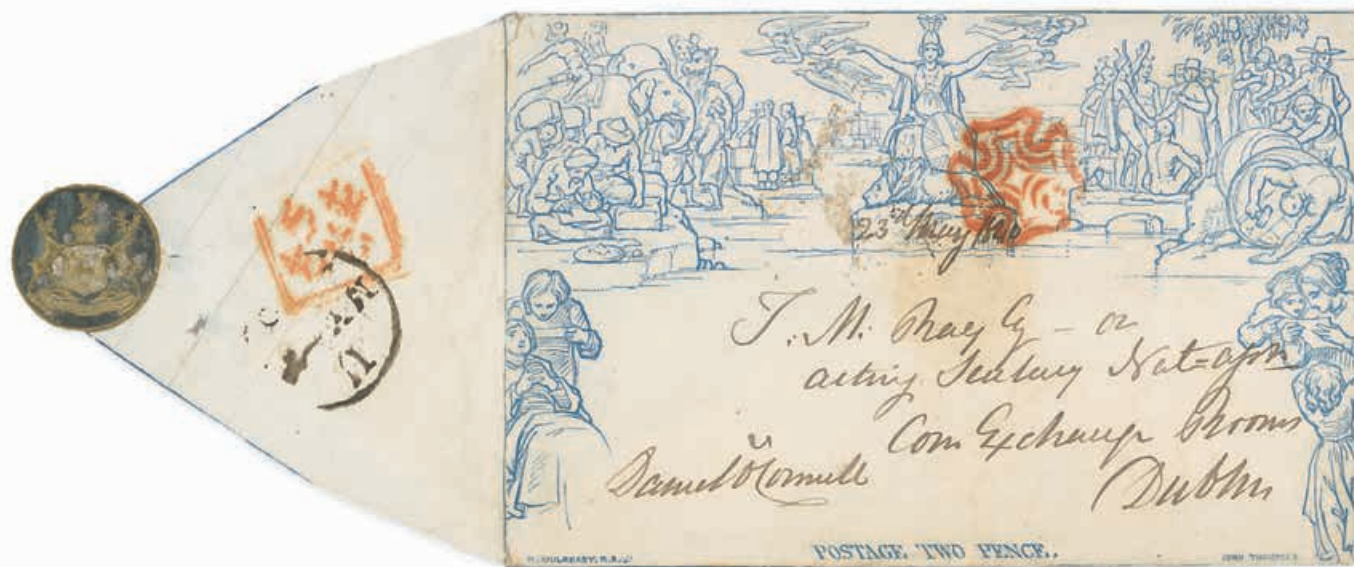 23rd May 1840
T. M. Ray Esq – or
acting Secretary Nat = assn
Corn Exchange Rooms
Dublin
Daniel O'Connell
POSTAGE TWO PENCE.
W. MULREADY, R.A.
JOHN THOMPSON